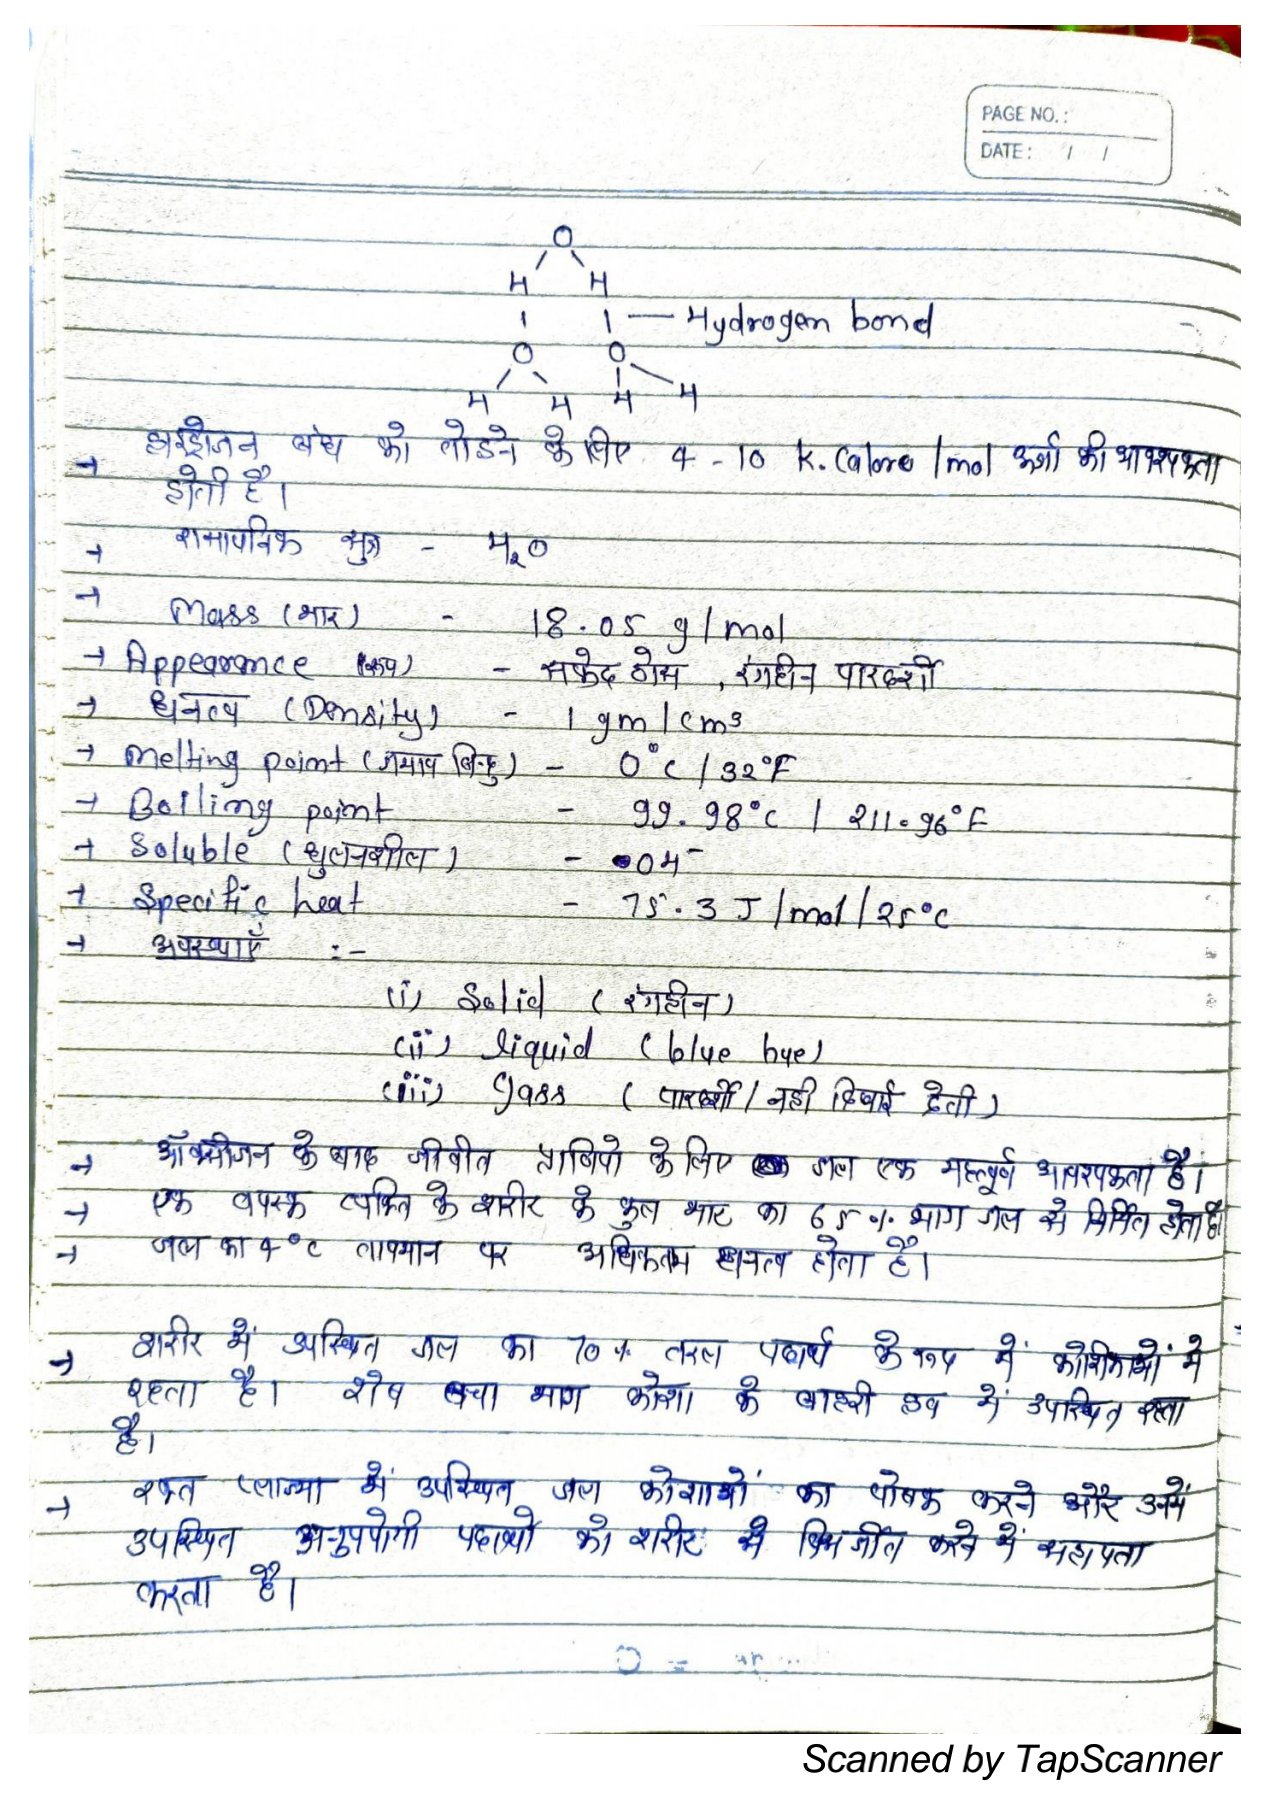 PAGE NO.:
DATE: / /
O
H H
Hydrogen bond
O O
H H H H
→ हाइड्रोजन बंध को तोडने के लिए 4 - 10 K. Calore / mol ऊर्जा की आवश्यकता
होती है।
→ रासायनिक सुत्र - H₂O
→ Mass (भार) - 18.05 g/mol
→ Appearance (रूप) - सफेद ठोस, रंगहीन पारदर्शी
→ घनत्व (Density) - 1 gm/cm³
→ Melting point (गलनांक बिन्दु) - 0°C / 32°F
→ Boiling point - 99.98°C / 211.96°F
→ Soluble (घुलनशील) - OH⁻
→ Specific heat - 75.3 J/mol/25°C
→ अवस्थाएँ :-
(i) Solid (रंगहीन)
(ii) liquid (blue hue)
(iii) gass (पारदर्शी / नही दिखाई देती)
→ ऑक्सीजन के बाद जीवीत प्राणियो के लिए जल एक महत्पूर्ण आवश्यकता है।
→ एक वयस्क व्यक्ति के शरीर के कुल भार का 65 % भाग जल से निर्मित होता है।
→ जल का 4°C तापमान पर अधिकतम घनत्व होता है।
→ शरीर में उपस्थित जल का 70 % तरल पदार्थ के रूप में कोशिकाओं मे
रहता है। शेष बचा भाग कोशा के बाहरी द्रव में उपस्थित रहता
है।
→ रक्त प्लाज्मा में उपस्थित जल कोशाओं का पोषक करने और उनमें
उपस्थित अनुपयोगी पदार्थो को शरीर से विसर्जीत करने में सहायता
करता है।
Scanned by TapScanner